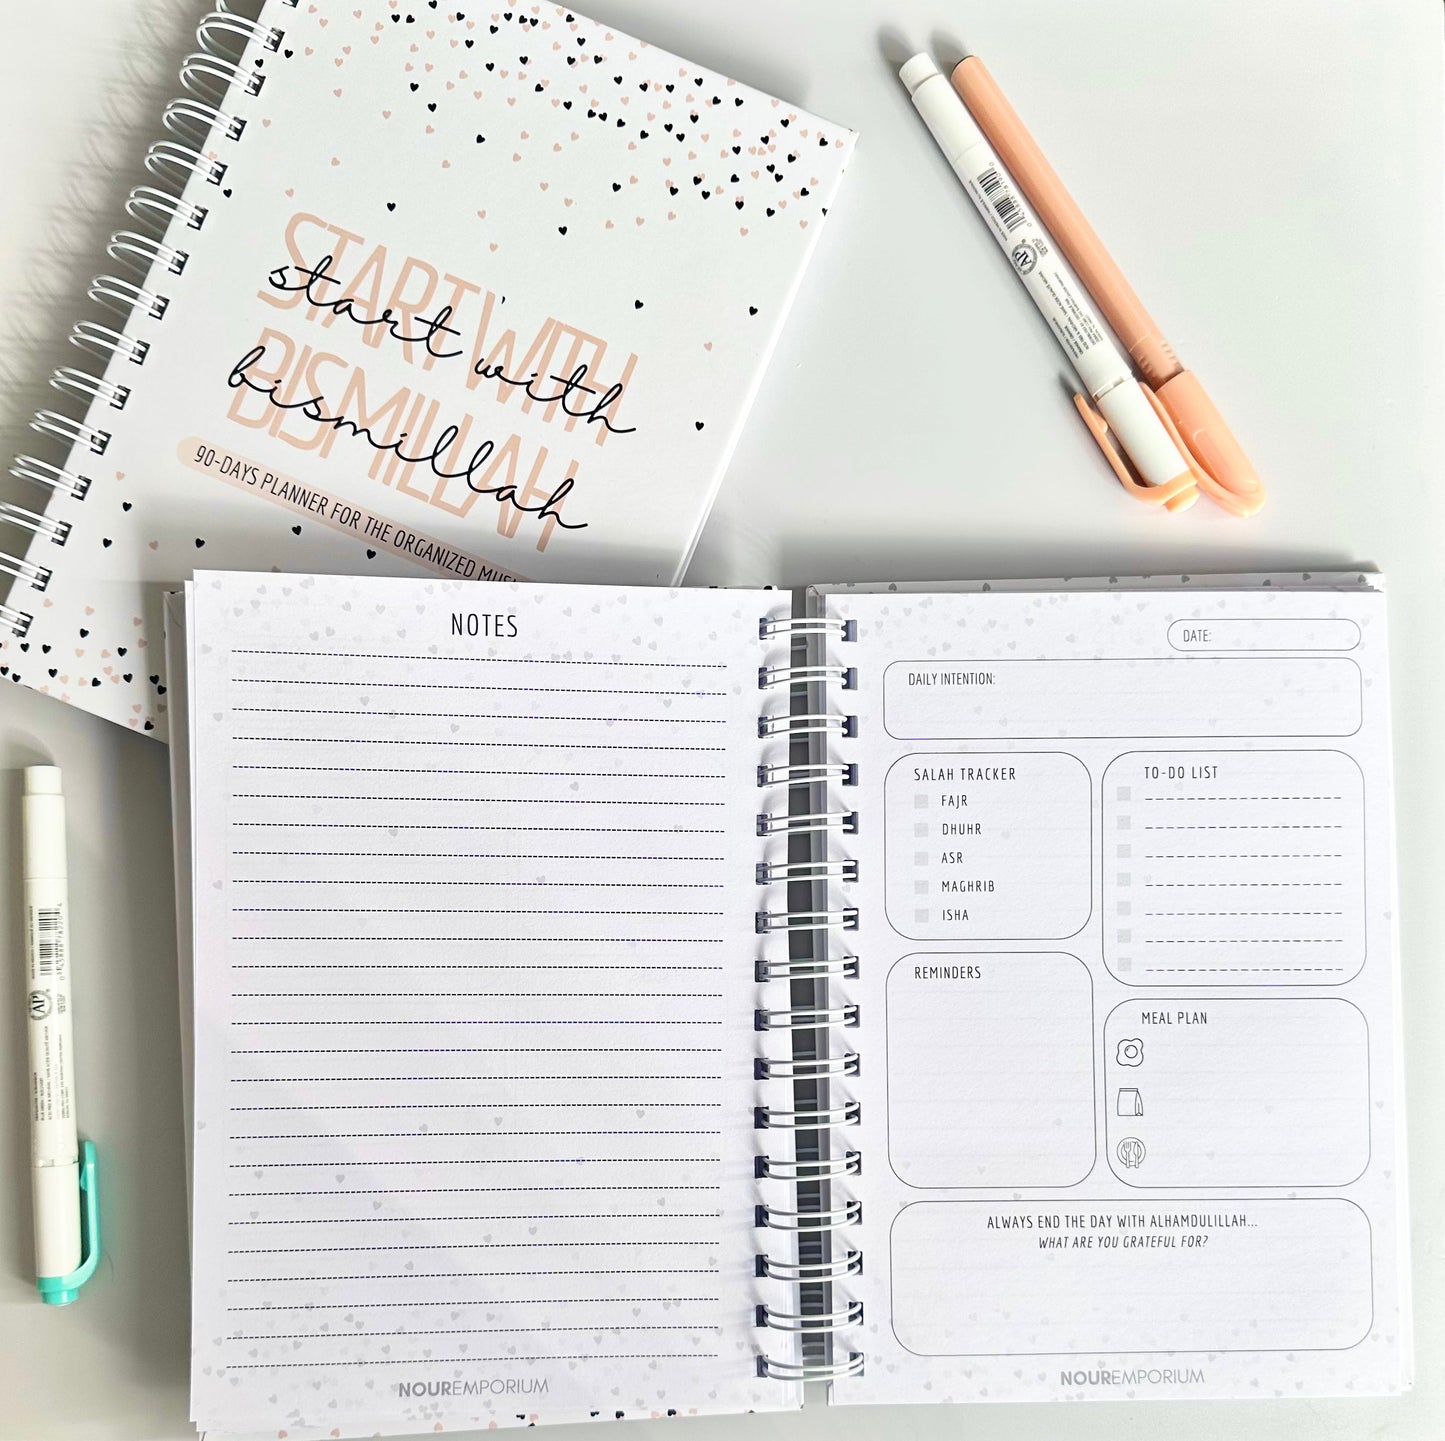 START WITH
start with
BISMILLAH
bismillah
90-DAYS PLANNER FOR THE ORGANIZED
NOTES
NOUREMPORIUM
DATE:
DAILY INTENTION:
SALAH TRACKER
FAJR
DHUHR
ASR
MAGHRIB
ISHA
TO-DO LIST
REMINDERS
MEAL PLAN
ALWAYS END THE DAY WITH ALHAMDULILLAH...
WHAT ARE YOU GRATEFUL FOR?
NOUREMPORIUM
AP
AP